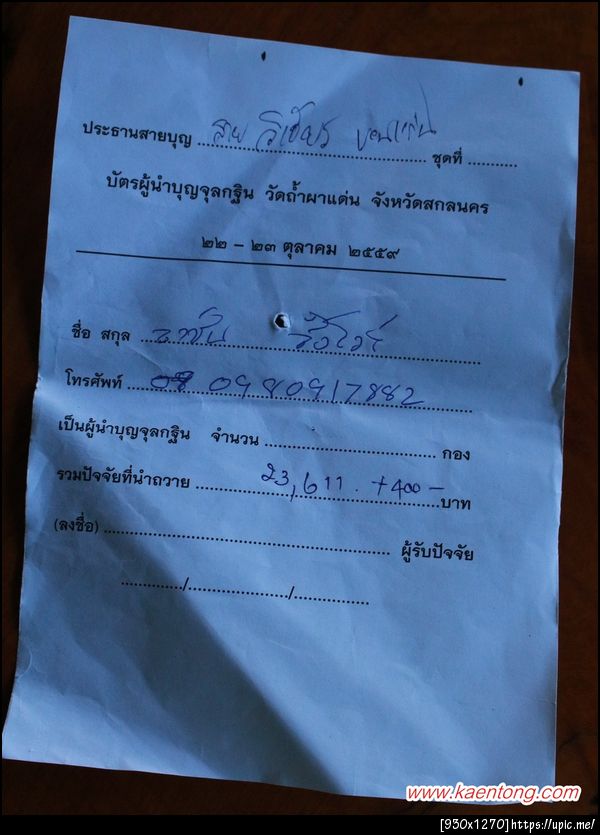 ประธานสายบุญ สาย วิเชียร ขอนแก่น ชุดที่
บัตรผู้นำบุญจุลกฐิน วัดถ้ำผาแด่น จังหวัดสกลนคร
๒๒ – ๒๓ ตุลาคม ๒๕๕๙
ชื่อ สกุล
โทรศัพท์ 0980917882
เป็นผู้นำบุญจุลกฐิน จำนวน กอง
รวมปัจจัยที่นำถวาย 23,611. +400– บาท
(ลงชื่อ) ผู้รับปัจจัย
/ /
www.kaentong.com
[930x1270]https://upic.me/